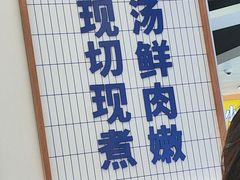 汤鲜肉嫩
现切现煮